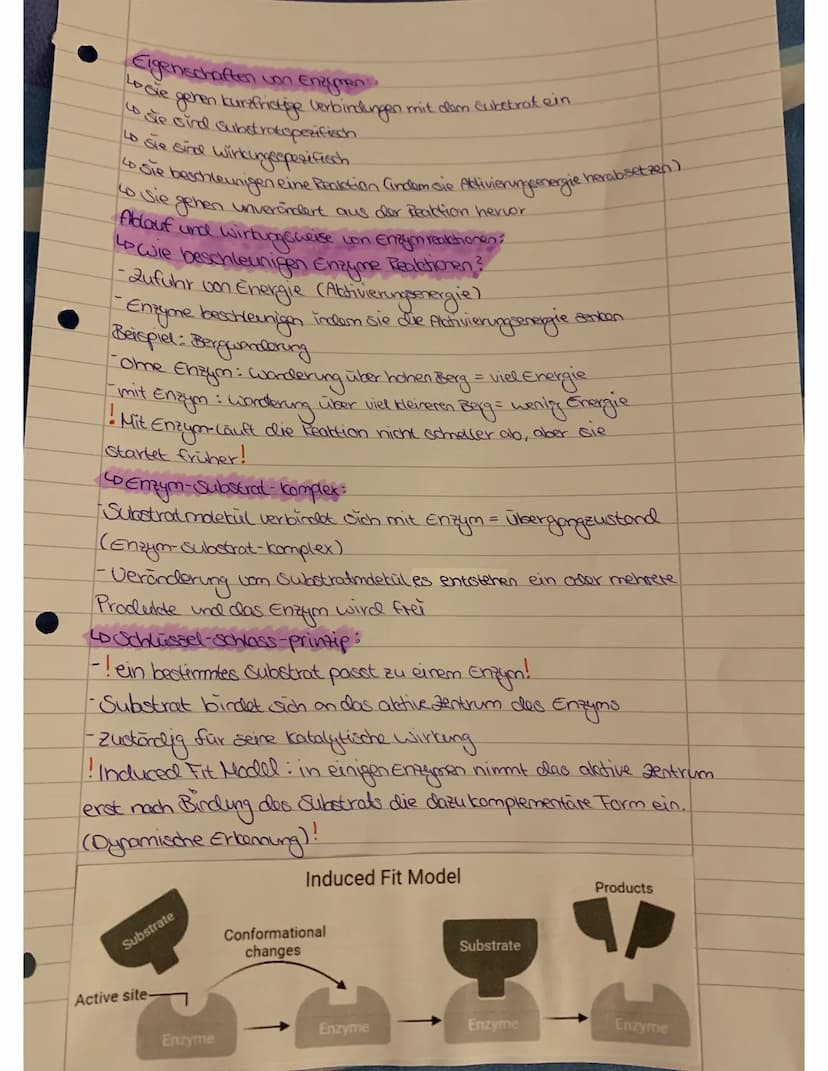 Eigenschaften von Enzymen:
↳ Sie gehen kurzfristige Verbindungen mit dem Substrat ein
↳ sie sind Substratspezifisch
↳ sie sind Wirkungsspezifisch
↳ Sie beschleunigen eine Reaktion (indem sie Aktivierungsenergie herabsetzen)
↳ Sie gehen unverändert aus der Reaktion hervor
Ablauf und Wirkungsweise von Enzymreaktionen:
↳ Wie beschleunigen Enzyme Reaktionen?
- Zufuhr von Energie (Aktivierungsenergie)
- Enzyme beschleunigen indem sie die Aktivierungsenergie senken
Beispiel: Bergwanderung
- ohne Enzym: Wanderung über hohen Berg = viel Energie
- mit Enzym: Wanderung über viel kleineren Berg = wenig Energie
! Mit Enzym läuft die Reaktion nicht schneller ab, aber sie
startet früher!
↳ Enzym-Substrat-Komplex:
- Substratmolekül verbindet sich mit Enzym = Übergangzustand
(Enzym-Substrat-Komplex)
- Veränderung vom Substratmolekül es entstehen ein oder mehrere
Produkte und das Enzym wird frei
↳ Schlüssel-schloss-prinzip:
- ! ein bestimmtes Substrat passt zu einem Enzym!
- Substrat bindet sich an das aktive Zentrum des Enzyms
- Zuständig für seine katalytische Wirkung
! Induced Fit Model: in einigen Enzymen nimmt das aktive Zentrum
erst nach Bindung des Substrats die dazu komplementäre Form ein.
(Dynamische Erkennung)!
Induced Fit Model
Products
Substrate
Conformational
changes
Substrate
Active site
Enzyme
Enzyme
Enzyme
Enzyme